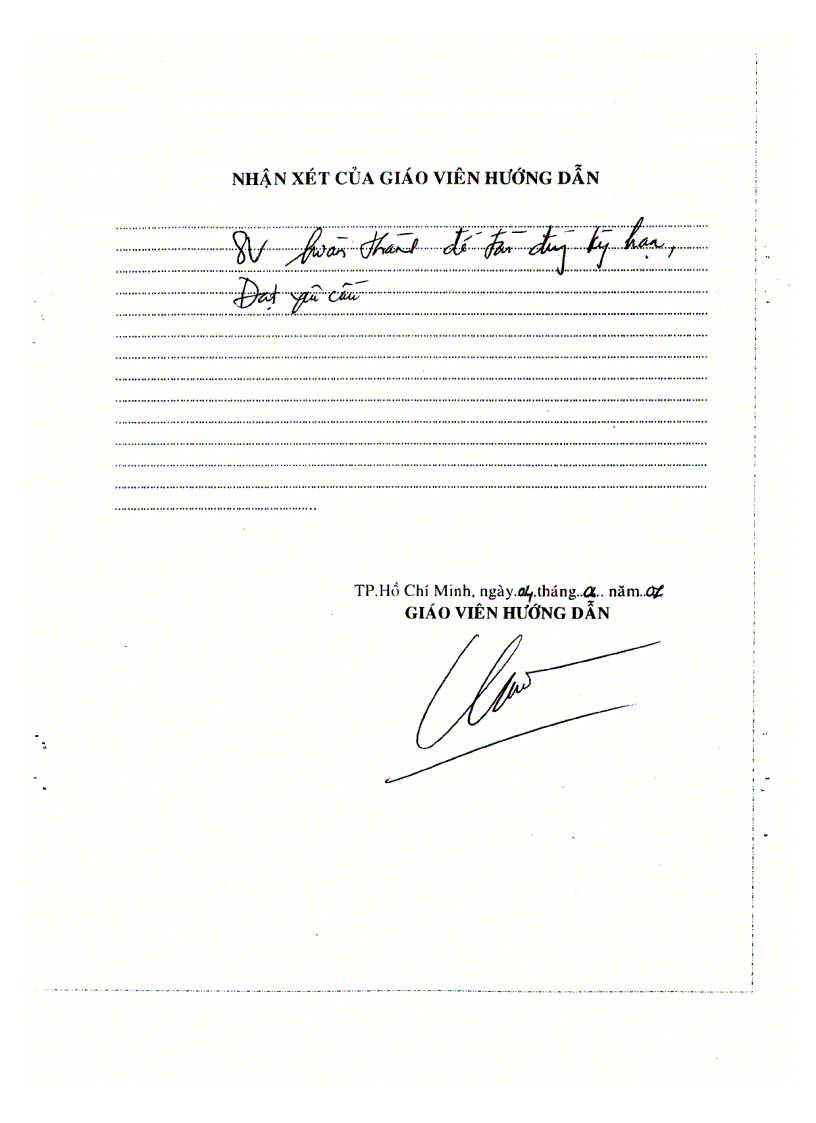 NHẬN XÉT CỦA GIÁO VIÊN HƯỚNG DẪN
SV hoàn thành đề tài đúng kỳ hạn,
Đạt yêu cầu
TP.Hồ Chí Minh, ngày.04.tháng.... năm..02
GIÁO VIÊN HƯỚNG DẪN